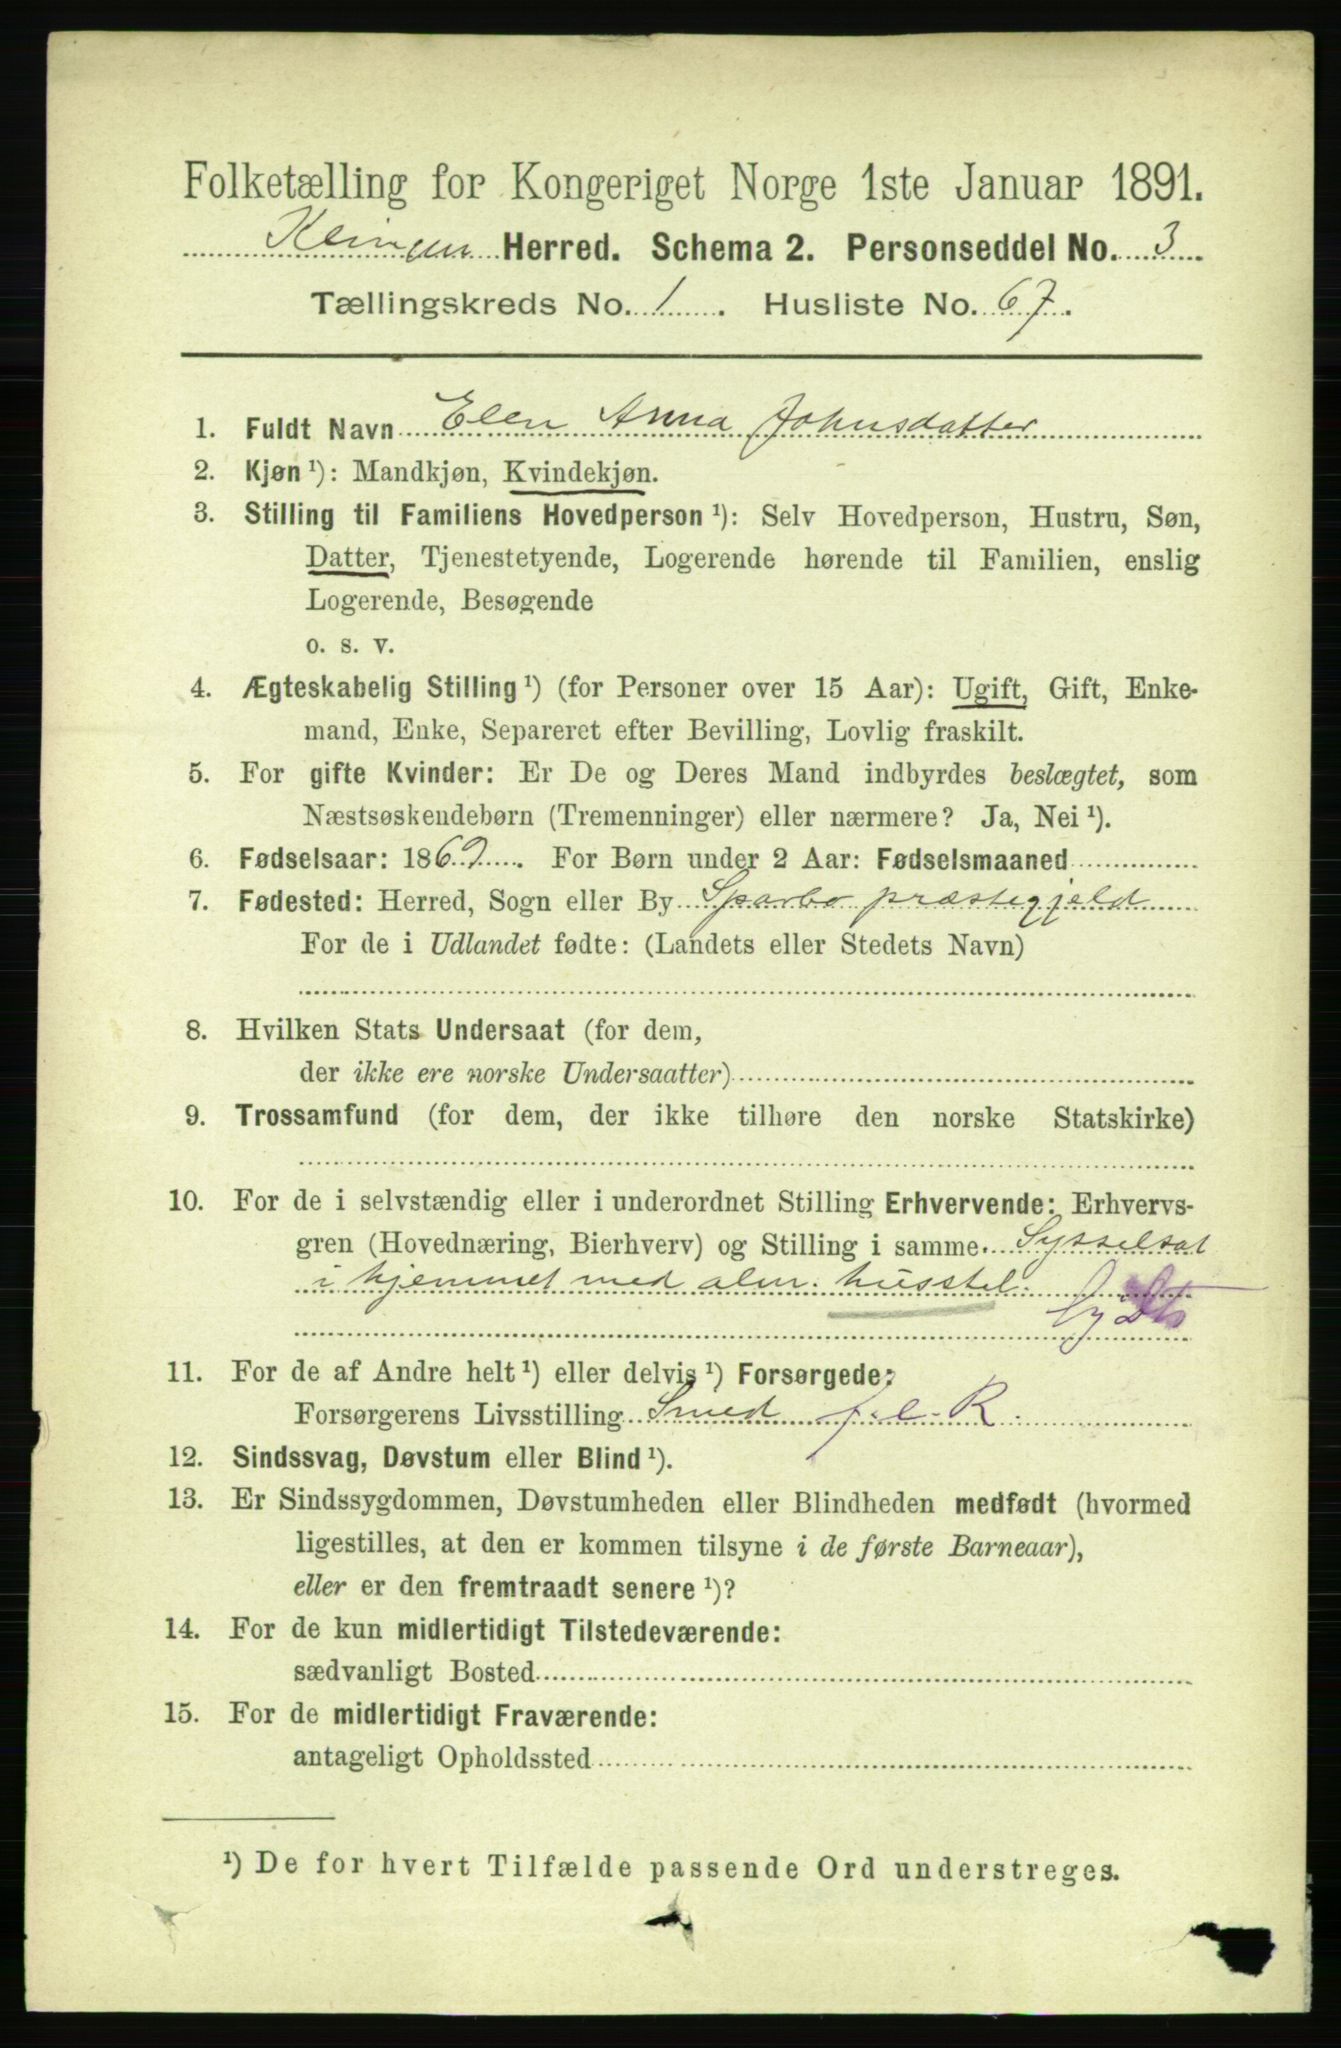 Folketælling for Kongeriget Norge 1ste Januar 1891.
Herred. Schema 2. Personseddel No. 3.
Tællingskreds No. 1. Husliste No. 67.
1. Fuldt Navn Elen Anna Johnsdatter
2. Kjøn ¹): Mandkjøn, Kvindekjøn.
3. Stilling til Familiens Hovedperson ¹): Selv Hovedperson, Hustru, Søn,
Datter, Tjenestetyende, Logerende hørende til Familien, enslig
Logerende, Besøgende
o. s. v.
4. Ægteskabelig Stilling ¹) (for Personer over 15 Aar): Ugift, Gift, Enke-
mand, Enke, Separeret efter Bevilling, Lovlig fraskilt.
5. For gifte Kvinder: Er De og Deres Mand indbyrdes beslægtet, som
Næstsøskendebørn (Tremenninger) eller nærmere? Ja, Nei ¹).
6. Fødselsaar: 1869. For Børn under 2 Aar: Fødselsmaaned
7. Fødested: Herred, Sogn eller By Sparbo præstegjeld
For de i Udlandet fødte: (Landets eller Stedets Navn)
8. Hvilken Stats Undersaat (for dem,
der ikke ere norske Undersaatter)
9. Trossamfund (for dem, der ikke tilhøre den norske Statskirke)
10. For de i selvstændig eller i underordnet Stilling Erhvervende: Erhvervs-
gren (Hovednæring, Bierhverv) og Stilling i samme. Sysselsat
i hjemmet med alm. husstel.
11. For de af Andre helt ¹) eller delvis ¹) Forsørgede:
Forsørgerens Livsstilling Smed f. e. R.
12. Sindssvag, Døvstum eller Blind ¹).
13. Er Sindssygdommen, Døvstumheden eller Blindheden medfødt (hvormed
ligestilles, at den er kommen tilsyne i de første Barneaar),
eller er den fremtraadt senere ¹)?
14. For de kun midlertidigt Tilstedeværende:
sædvanligt Bosted
15. For de midlertidigt Fraværende:
antageligt Opholdssted
¹) De for hvert Tilfælde passende Ord understreges.